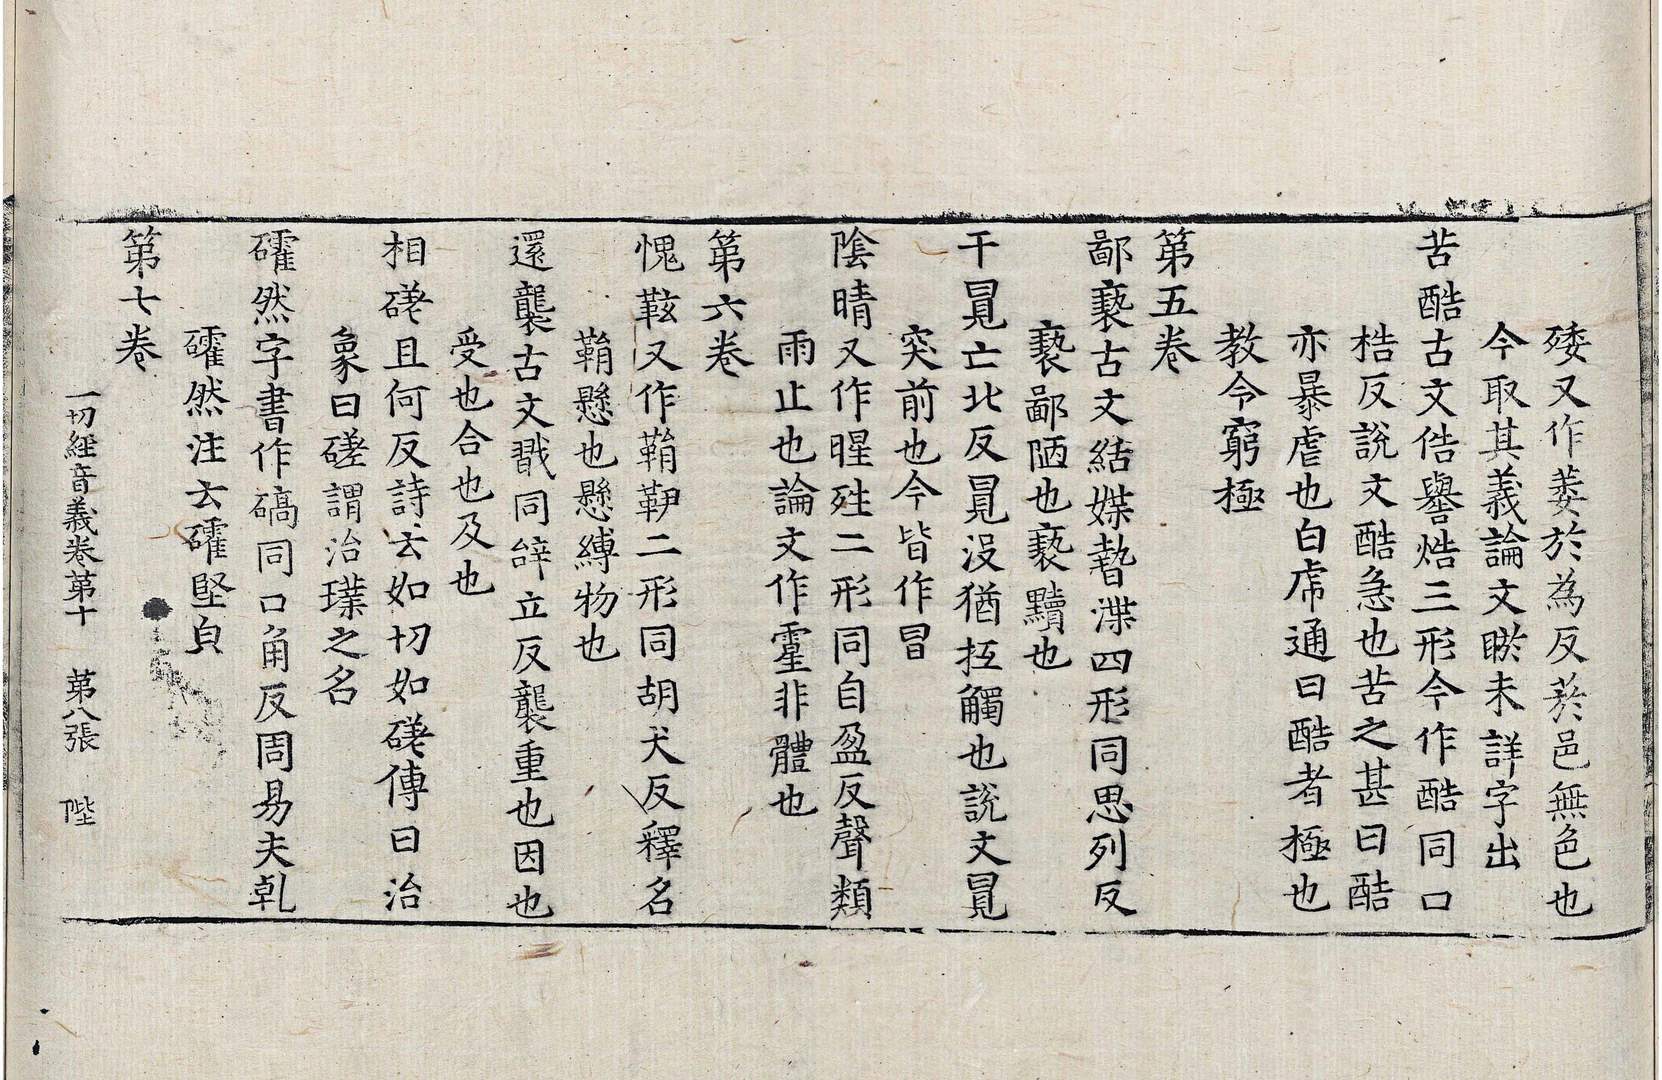 矮又作萎於為反菸邑無色也
今取其義論文睽未詳字出
苦酷古文俈嚳焅三形今作酷同口
梏反說文酷急也苦之甚曰酷
亦暴虐也白虎通曰酷者極也
教令窮極
第五卷
鄙褻古文結媟暬渫四形同思列反
褻鄙陋也褻黷也
干冐亡北反冐沒猶抂觸也說文冐
突前也今皆作冒
陰晴又作暒殅二形同自盈反聲類
雨止也論文作霪非體也
第六卷
愧䩙又作鞙䩛二形同胡犬反釋名
鞙懸也懸縛物也
還襲古文戬同辝立反襲重也因也
受也合也及也
相磋且何反詩云如切如磋傳曰治
象曰磋謂治璞之名
礭然字書作碻同口角反周易夫乹
礭然注云礭堅皃
第七卷
一切經音義卷第十 第八張 陛